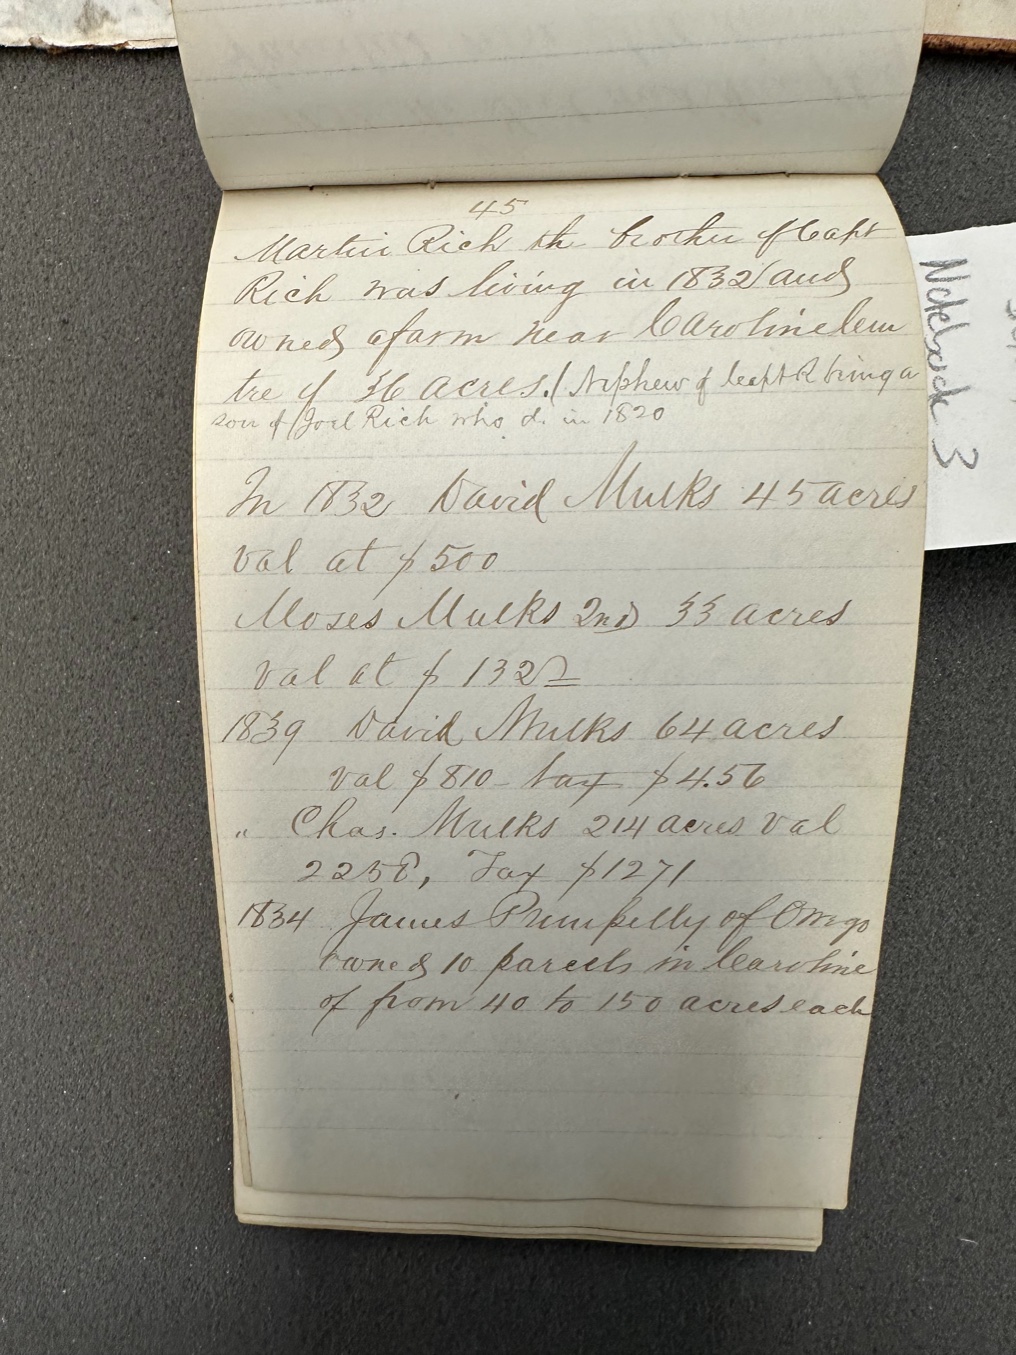 45
Martin Rich the brother of Capt
Rich was living in 1832 and
owned a farm near Caroline Cen
tre of 36 acres. ( Nephew of Capt R being a
son of Joel Rich who d. in 1820
In 1832 David Mulks 45 acres
val at $500
Moses Mulks 2nd 33 acres
val at $ 132
1839 David Mulks 64 acres
val $810 tax $4.56
" Chas. Mulks 214 acres val
2258, Tax $1271
1834 James Pumpelly of Owego
owned 10 parcels in Caroline
of from 40 to 150 acres each
Notebook 3